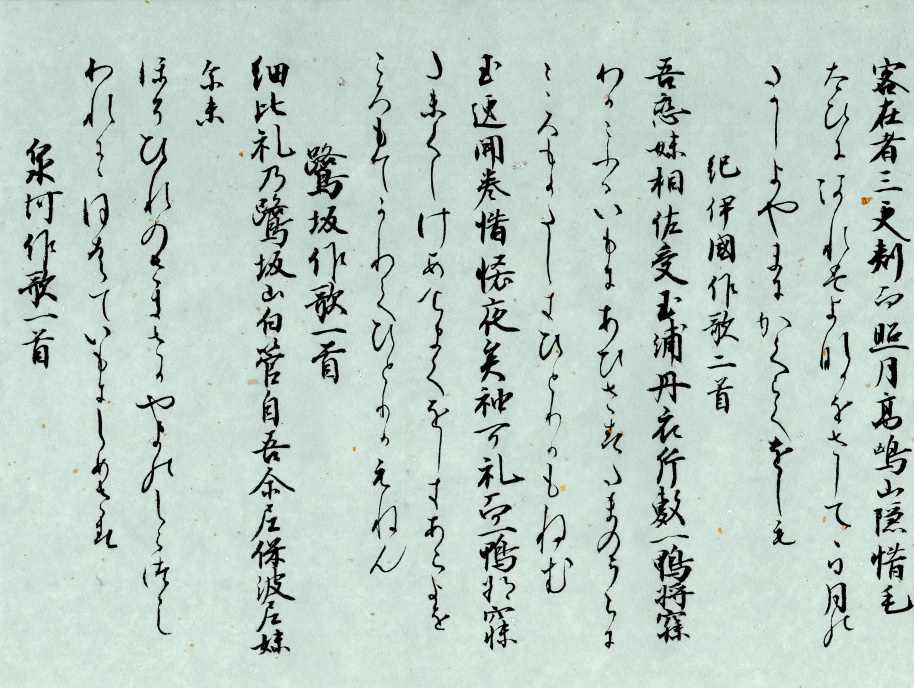 客在者三更刺而照月高嶋山隠惜毛
たひにあれはよなかをさしてゝる月の
たかしまやまにかくらくをしも
紀伊國作歌二首
吾恋妹相佐受玉浦丹衣片敷一鴨将寐
わかこふるいもにあひささすたまのうらに
ころもかたしきひとりかもねむ
玉匣開巻惜恡夜矣袖可礼而一鴨将寐
たまくしけあけまくをしきあたらよを
ころもてかれてひとりかもねん
鷺坂作歌一首
細比礼乃鷺坂山白管自吾尓尼保波尼妹
尓示
ほそひれのさきさかやまのしらつゝし
われにゝほはていもにしめさむ
泉河作歌一首